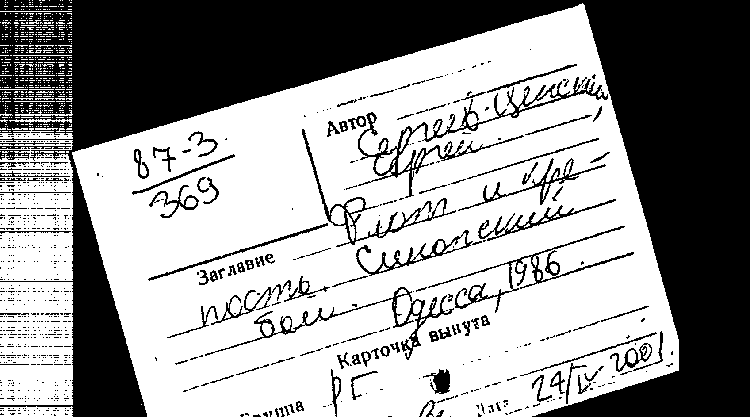 87-3
369
Автор Сергеев-Ценский,
Сергей.
Флот и кре-
Заглавие
пость. Синопский
бой. Одесса, 1986.
Карточка вынута
Группа РГ
Дата 24/IV 2001.